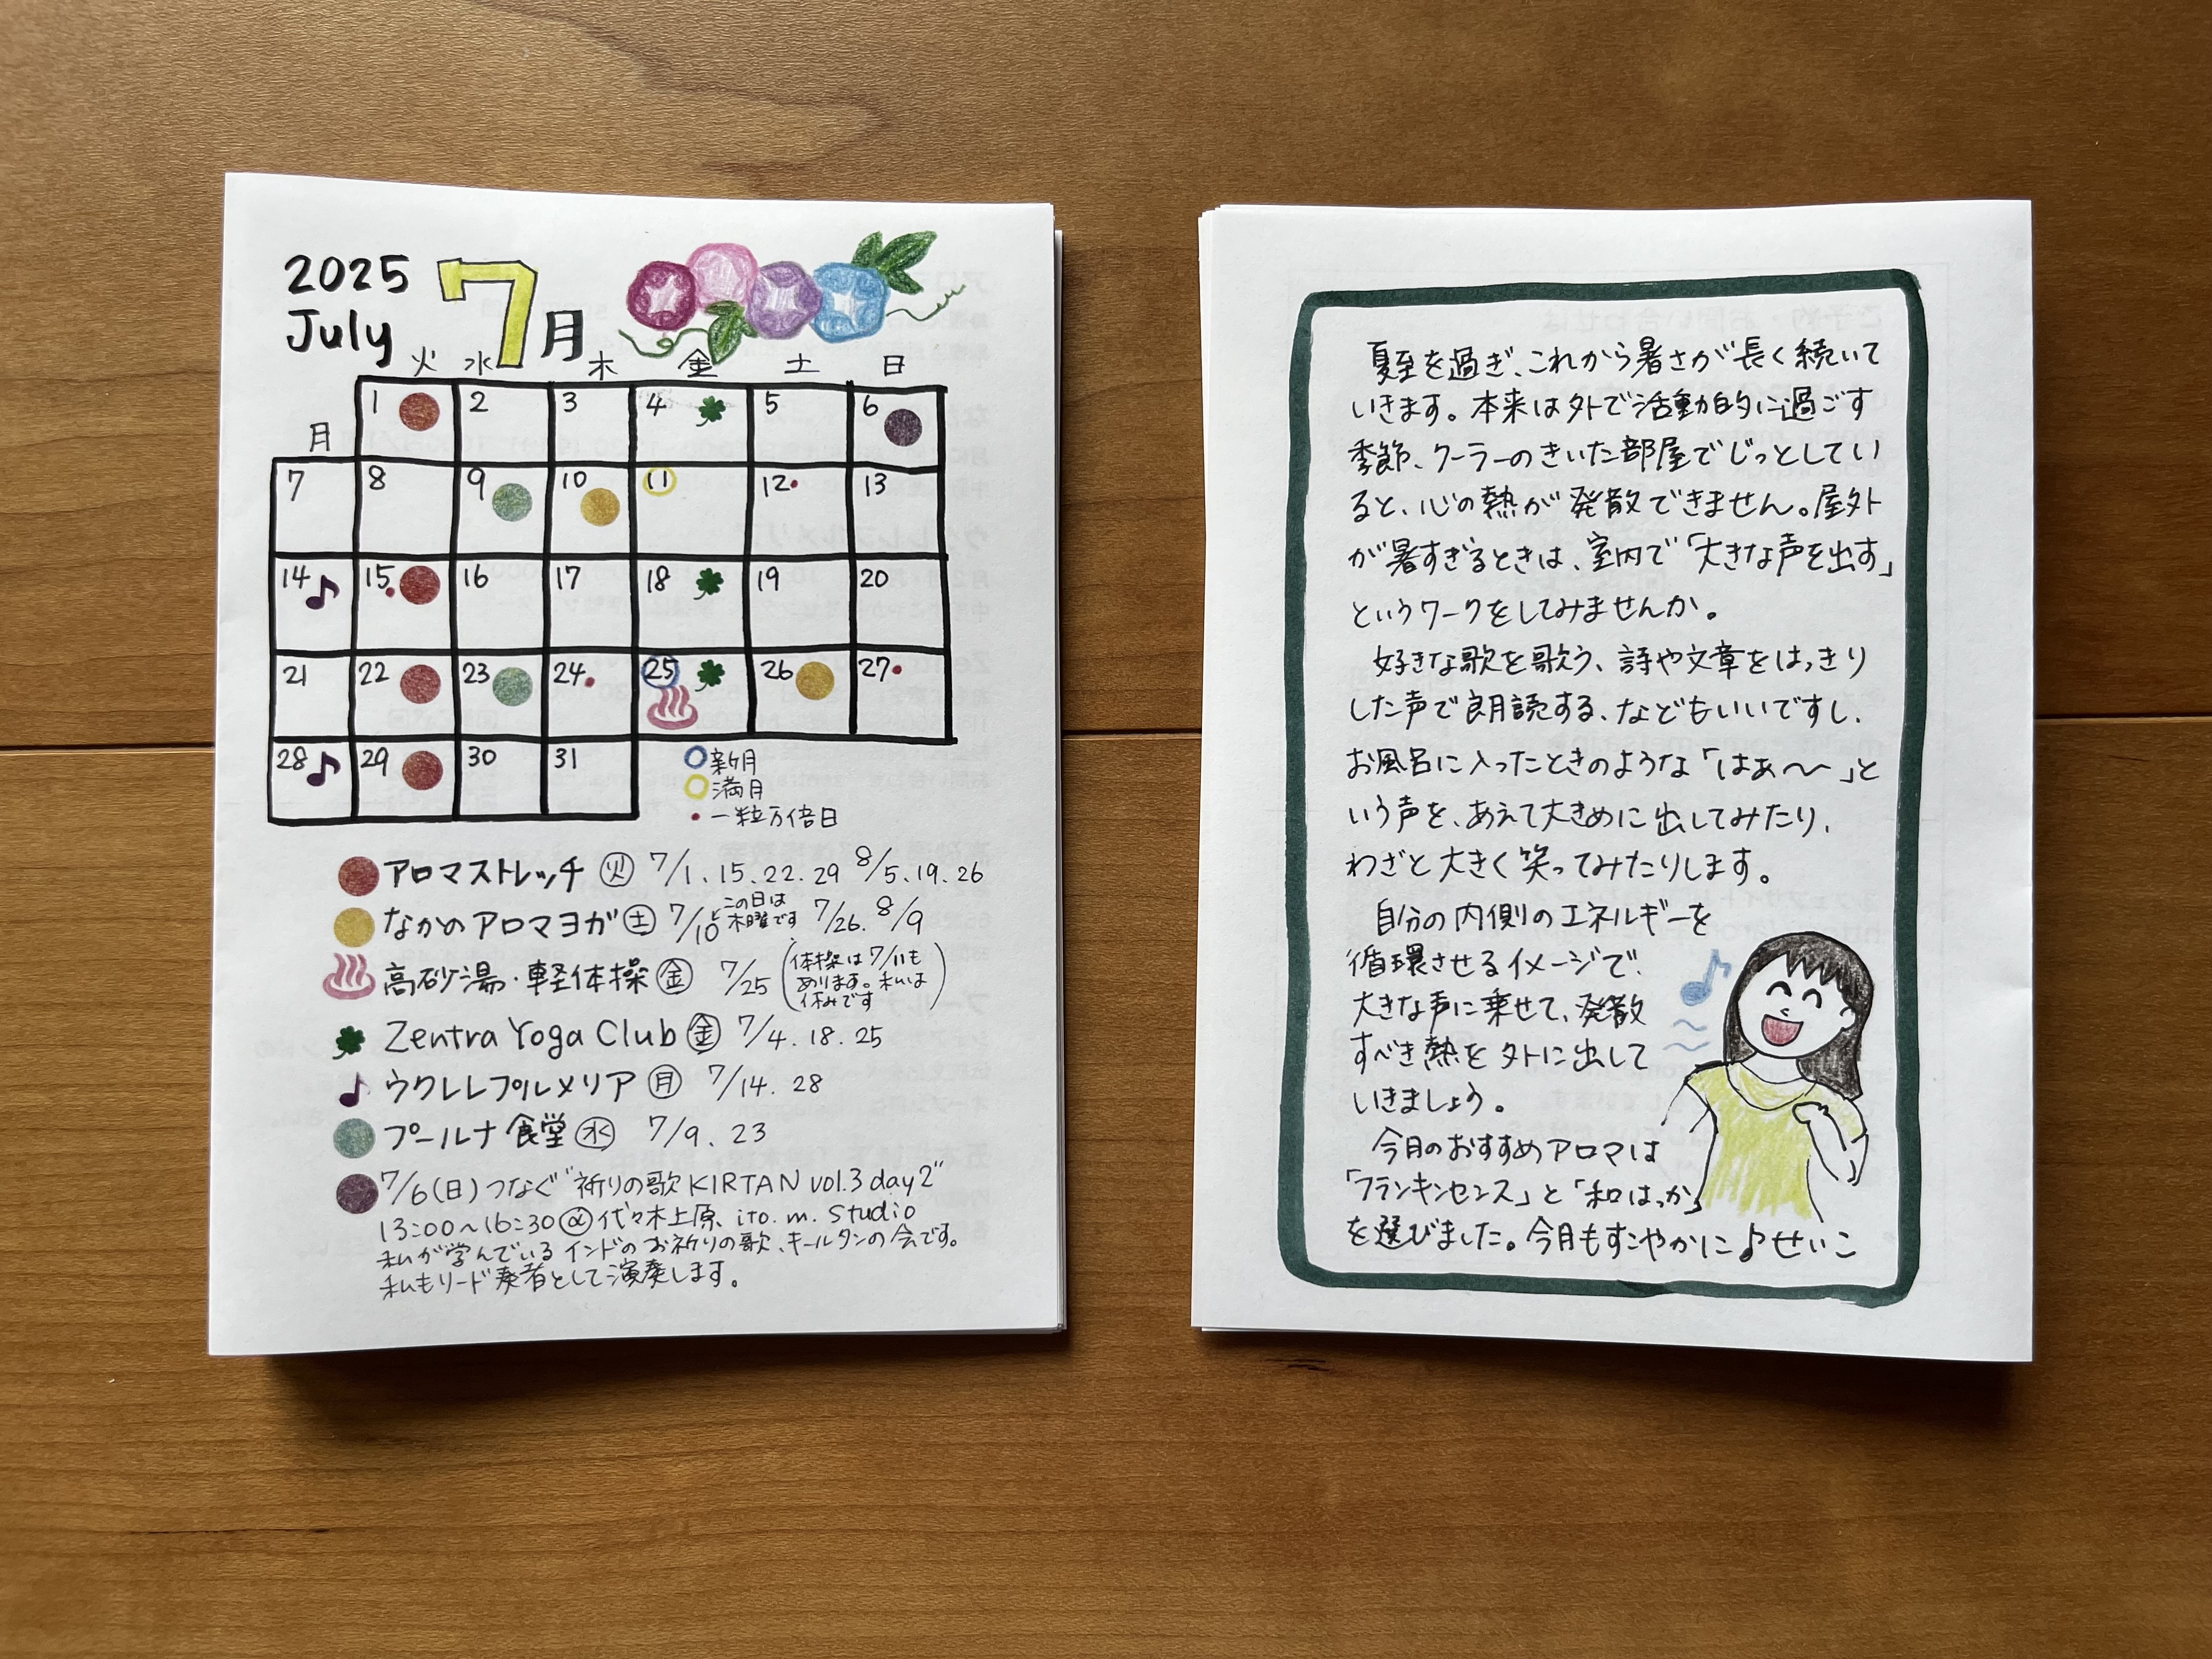 2025
July
7月
月 火 水 木 金 土 日
1 2 3 4 5 6
7 8 9 10 11 12 13
14 15 16 17 18 19 20
21 22 23 24 25 26 27
28 29 30 31
新月
満月
一粒万倍日
アロマストレッチ ㊋ 7/1.15.22.29 8/5.19.26
なかのアロマヨガ ㊏ 7/10 この日は木曜です 7/26. 8/9
高砂湯・軽体操 ㊎ 7/25 (体操は7/11もあります。私は休みです)
Zentra Yoga Club ㊎ 7/4.18.25
ウクレレプルメリア ㊊ 7/14.28
プールナ食堂 ㊌ 7/9.23
7/6(日)つなぐ“祈りの歌KIRTAN vol.3 day2”
13:00〜16:30 @代々木上原、ito.m.studio
私が学んでいるインドのお祈りの歌、キールタンの会です。
私もリード奏者として演奏します。
夏至を過ぎ、これから暑さが長く続いて
いきます。本来は外で活動的に過ごす
季節、クーラーのきいた部屋でじっとしてい
ると、心の熱が発散できません。屋外
が暑すぎるときは、室内で「大きな声を出す」
というワークをしてみませんか。
好きな歌を歌う、詩や文章をはっきり
した声で朗読する、などもいいですし、
お風呂に入ったときのような「はぁ〜〜」と
いう声を、あえて大きめに出してみたり、
わざと大きく笑ってみたりします。
自分の内側のエネルギーを
循環させるイメージで、
大きな声に乗せて、発散
すべき熱を外に出して
いきましょう。
今月のおすすめアロマは
「フランキンセンス」と「和はっか」
を選びました。今月もすこやかに♪せいこ